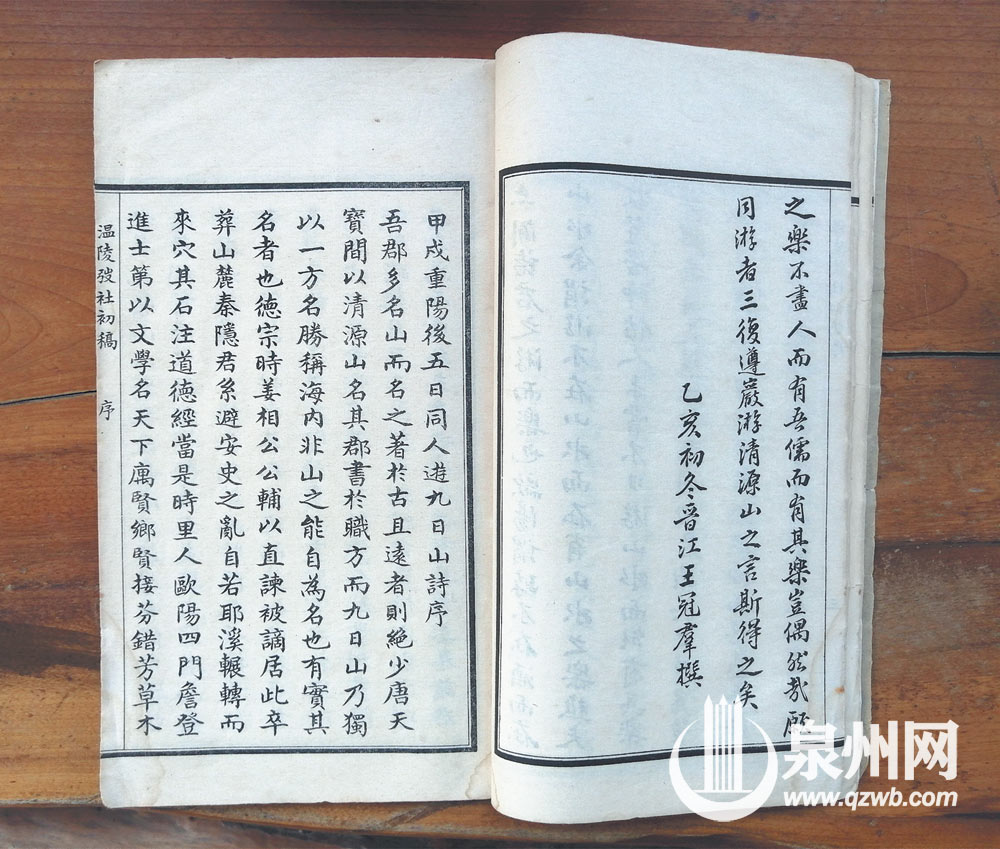 之樂不盡人而有吾儒而有其樂豈偶然哉願
同游者三復遵巖游清源山之言斯得之矣
乙亥初冬晉江王冠羣撰
甲戌重陽後五日同人遊九日山詩序
吾郡多名山而名之著於古且遠者則絶少唐天
寶間以清源山名其郡書於職方而九日山乃獨
以一方名勝稱海内非山之能自為名也有實其
名者也德宗時姜相公公輔以直諫被謫居此卒
葬山麓秦隱君系避安史之亂自若耶溪輾轉而
來穴其石注道德經當是時里人歐陽四門詹登
進士第以文學名天下厲賢鄉賢接芬錯芳草木
温陵弢社初稿 序
泉州网
www.qzwb.com